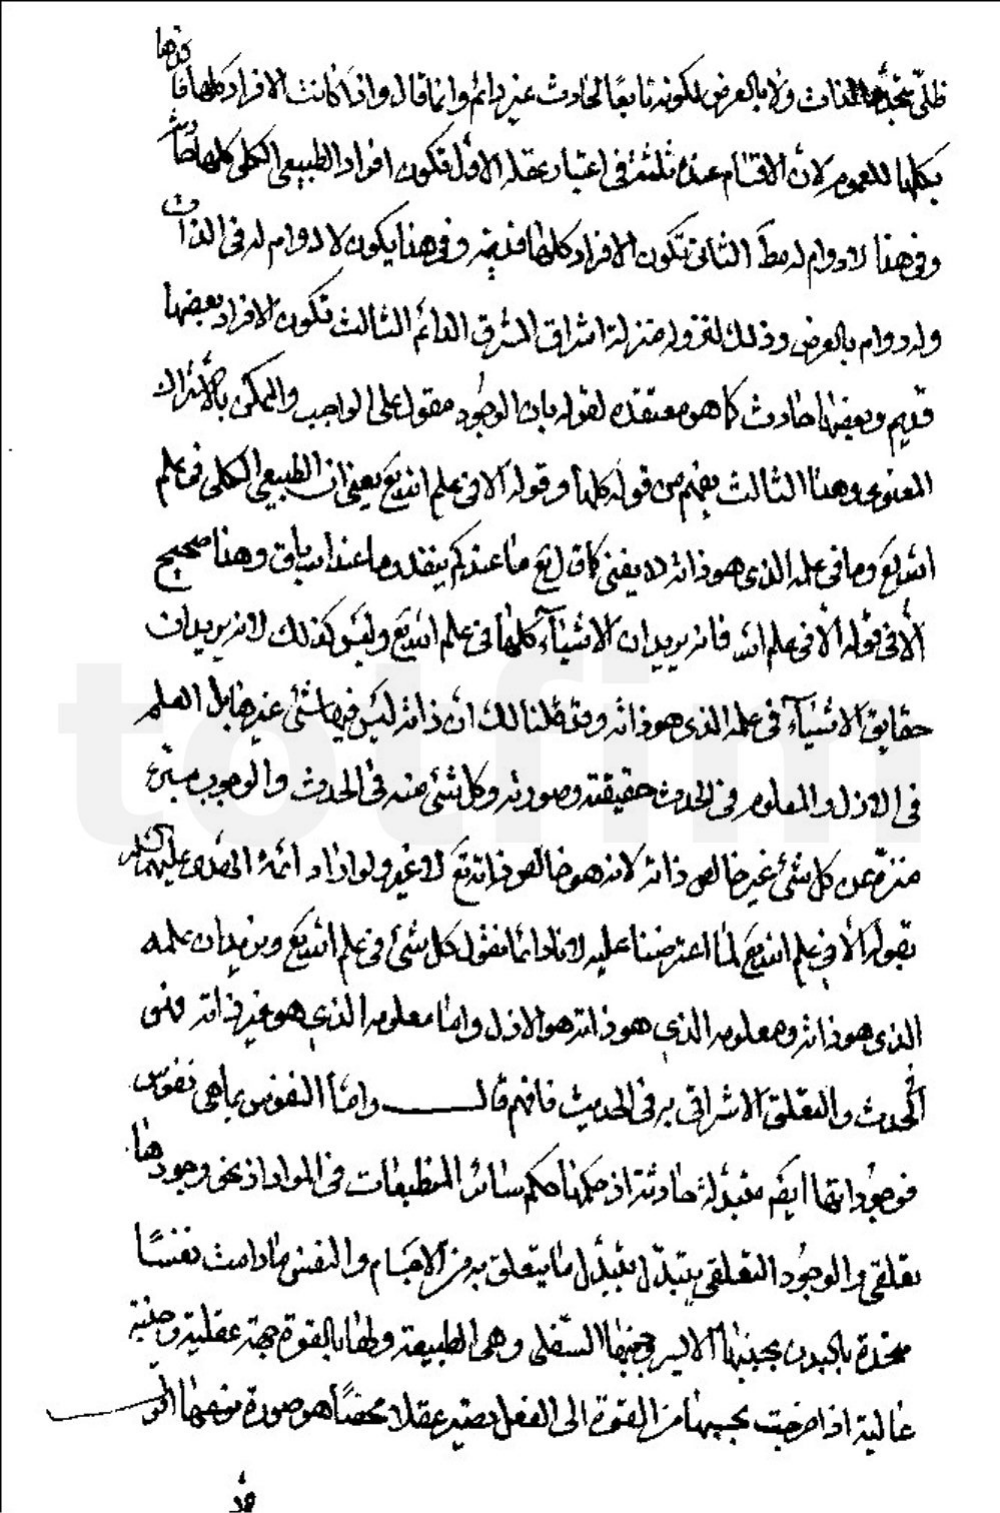 ظلي بتجدد الذات ولا بالعرض لكونه تابعا لحادث غير دائم وانما قال واذا كانت الافراد كلها
بكلها للعموم لان الاقسام عنده ثلثة في اعتبار عقله الاول فتكون افراد الطبيعي الكلي كلها حادث
وفي هذا لا دوام له مط الثاني تكون الافراد كلها قديمة وفي هذا يكون لا دوام له في الذات
وله دوام بالعرض وذلك لنزوله منزلة اشراق المشرق الدائم الثالث تكون الافراد بعضها
قديم وبعضها حادث كما هو معتقده لقوله بان الوجود مقول على الواجب والممكن بالاشتراك
المعنوي وهذا الثالث يفهم من قوله كلها وقوله الا في علم الله تع يعني ان الطبيعي الكلي في علم
الله تع وما في علمه الذي هو ذاته لا يفنى كما قال تع ما عندكم ينفد وما عند الله باق وهذا صحيح
الا في قوله الا في علم الله فانه يريد ان الاشياء كلها في علم الله تع وليس كذلك لانه يريد ان
حقايق الاشياء في علمه الذي هو ذاته وقد قلنا لك ان ذاته ليس فيها شئ غيرها بل العلم
في الازل والمعلوم في الحدث حقيقته وصورته وكل شئ منه في الحدث والوجوب مبرّء
منزّه عن كل شئ غير خالص ذاته لانه هو خالص ذاته تع لا غير ولو اراد ائمة الهدى عليهم السلام
بقوله الا في علم الله تع لما اعترضنا عليه لانا دائما نقول كل شئ في علم الله تع ونريد ان علمه
الذي هو ذاته ومعلومه الذي هو ذاته هو الازل واما معلومه الذي هو غير ذاته فهو
الحدث والتعلق الاشراقي به في الحديث فافهم قال واما النفوس بما هي نفوس
فوجوداتها ايضً متبدلة حادثة اذ حكمها حكم سائر المنطبعات في المواد اذ نحو وجودها
تعلقي والوجود التعلقي يتبدّل بتبدّل ما يتعلق به من الاجسام والنفس ما دامت نفسًا
متحدة بالبدن بجنبها الايسر وجنبها السفلى وهي الطبيعة ولها بالقوة جهة عقلية وحيثية
عالية اذا خرجت بحسبها من القوة الى الفعل تصير عقلا محضًا هو صورة نوعها